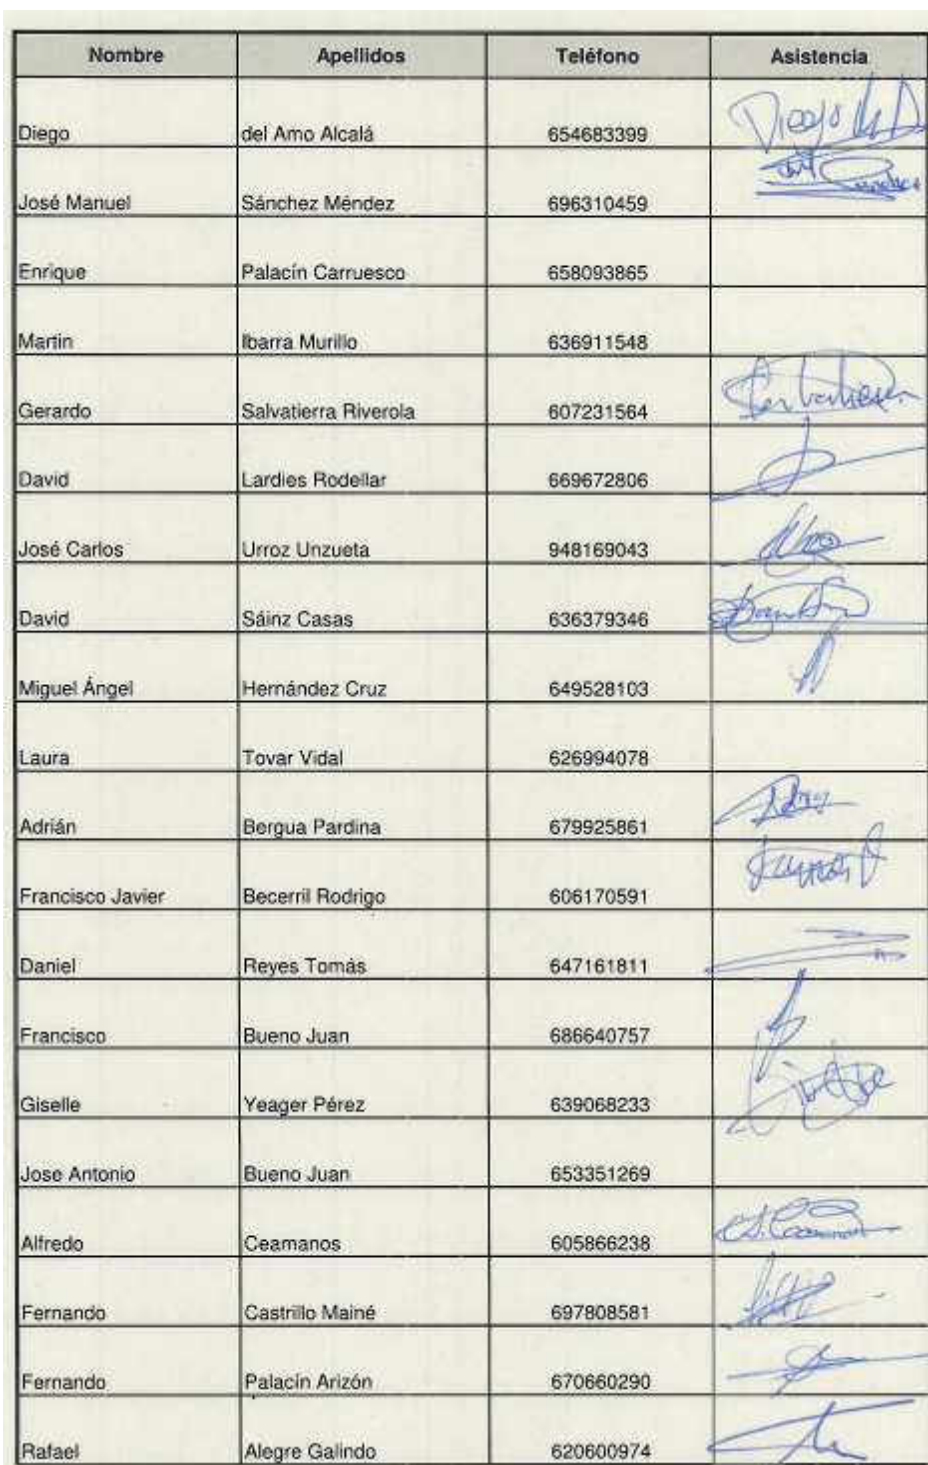 Nombre Apellidos Teléfono Asistencia
Diego del Amo Alcalá 654683399 Diego
José Manuel Sánchez Méndez 696310459
Enrique Palacín Carruesco 658093865
Martin Ibarra Murillo 636911548
Gerardo Salvatierra Riverola 607231564
David Lardies Rodellar 669672806
José Carlos Urroz Unzueta 948169043
David Sáinz Casas 636379346
Miguel Ángel Hernández Cruz 649528103
Laura Tovar Vidal 626994078
Adrián Bergua Pardina 679925861
Francisco Javier Becerril Rodrigo 606170591
Daniel Reyes Tomás 647161811
Francisco Bueno Juan 686640757
Giselle Yeager Pérez 639068233
Jose Antonio Bueno Juan 653351269
Alfredo Ceamanos 605866238
Fernando Castrillo Mainé 697808581
Fernando Palacín Arizón 670660290
Rafael Alegre Galindo 620600974